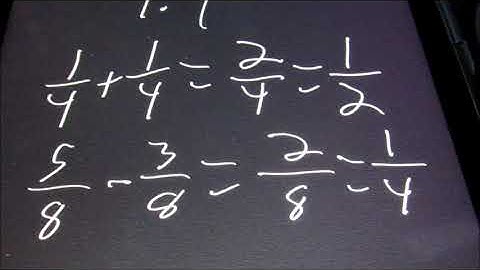 1/4 + 1/4 = 2/4 = 1/2
5/8 - 3/8 = 2/8 = 1/4